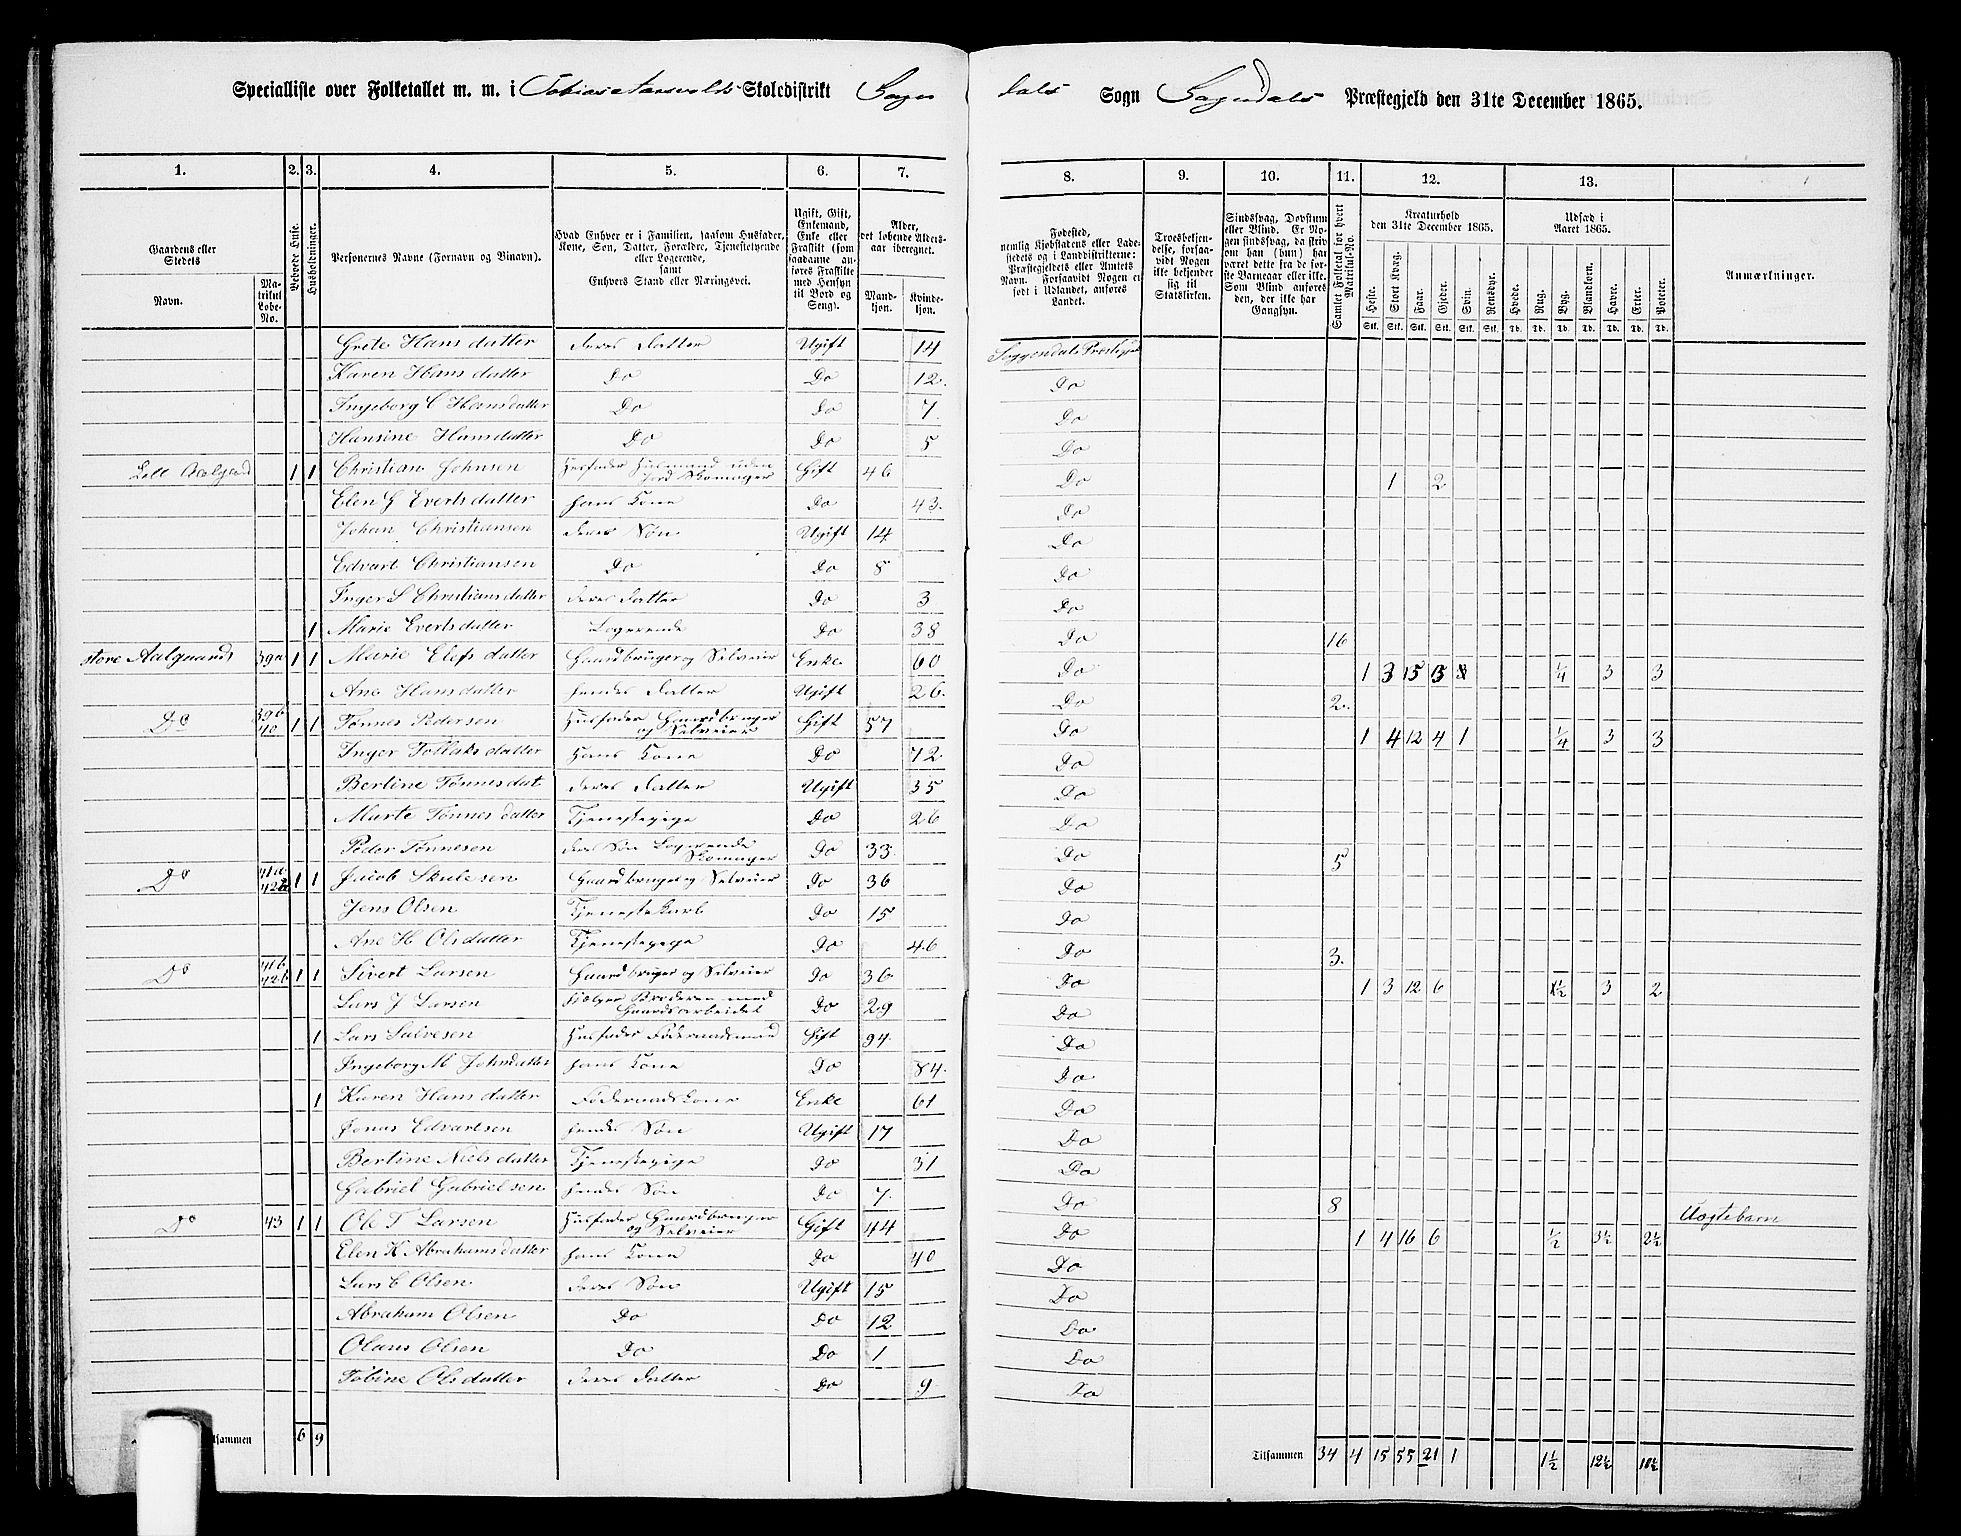 Specialliste over Folketallet m. m. i Skoledistrikt Sogn Sogndals Præstegjeld den 31te December 1865.
1. 2. 3. 4. 5. 6. 7. 8. 9. 10. 11. 12. 13.
Gaardens eller Stedets Navn. Matrikul Løbe-No. Beboede Huse. Husholdninger. Personernes Navne (Fornavn og Tilnavn).
Hvad Enhver er i Familien, saasom Husfader, Kone, Søn, Datter, Forældre, Tjenestetyende eller Logerende, samt Enhvers Stand eller Næringsvei.
Ugift, Gift, Enkemand, Enke eller Fraskilt (som saadanne anføres Fraskilte med Hensyn til Bord og Seng).
Alder, det løbende Aldersaar iberegnet. Mandkjøn. Kvindekjøn.
Fødested, nemlig Kjøbstadens eller Ladestedets og i Landdistrikterne: Præstegjeldets eller Amtets Navn. Forsaavidt Nogen er født i Udlandet, anføres Landet.
Troesbekjendelse, forsaavidt Nogen ikke bekjender sig til Statskirken.
Sindssvag, Døvstum eller Blind. Er Nogen sindssvag, da skrives om han (hun) har været dette fra de første Barneaar eller ikke. Som Blind anføres den, der ikke har Gangsyn.
Samlet Folketal for hvert Matrikul-No.
Kreaturhold den 31te December 1865. Heste. Stort Kvæg. Faar. Gjeder. Svin. Rensdyr.
Udsæd i Aaret 1865. Hvede. Rug. Byg. Blandkorn. Havre. Erter. Poteter.
Anmærkninger.
Stk. Stk. Stk. Stk. Stk. Stk. Td. Td. Td. Td. Td. Td. Td.
Grete Hansdatter deres Datter Ugift 14 Soggendals Prestegj
Karen Hansdatter Do Do 12. Do
Ingeborg C Hansdatter Do Do 7. Do
Hansine Hansdatter Do Do 5 Do
1 1 Christian Johnsen Husfader Husmand uden Jord Skomager Gift 46 Do 1 2
Elen G Evertsdatter hans Kone Do 43. Do
Johan Christiansen deres Søn Ugift 14 Do
Edvart Christiansen Do Do 8 Do
Inger S Christiansdatter deres Datter Do 3 Do
1 Marie Evertsdatter Logerende Do 38 Do 16
store Aalgaard 39a 1 1 Marie Elefsdatter Gaardbruger og Selveier Enke 60 Do 1 3 15 13 1/4 3 3
Ane Hansdatter hendes Datter Ugift 26. Do 2.
Do 39b 40 1 1 Tønnes Pedersen Husfader Gaardbruger og Selveier Gift 57 Do 1 4 12 4 1 1/4 3 3
Inger Tollaksdatter hans Kone Do 72 Do
Bertine Tønnesdat deres Datter Ugift 35 Do
Marte Tønnesdatter Tjenestepige Do 26 Do
Peder Tønnesen deres Søn Logerende Skomager Do 33 Do 5
Do 41a 42a 1 1 Jacob Skulesen Gaardbruger og Selveier Do 36 Do
Jens Olsen Tjenestekarl Do 15 Do
Ane H Olsdatter Tjenestepige Do 46 Do 3.
Do 41b 42b 1 1 Sivert Larsen Gaardbruger og Selveier Do 36 Do 1 3 12 6 1/2 3 2
Lars J Larsen hjelper Broderen med Gaardsarbeidet Do 29 Do
1 Lars Salvesen Husfader Føderaadsmand Gift 94. Do
Ingeborg M Johnsdatter hans Kone Do 84. Do
1 Karen Hansdatter Føderaadskone Enke 61 Do
Jonas Edvartsen hendes Søn Ugift 17 Do
Bertine Nielsdatter Tjenestepige Do 31 Do
Gabriel Gabrielsen hendes Søn Do 7. Do 8 Uægtebarn
Do 43 1 1 Ole T Larsen Husfader Gaardbruger og Selveier Gift 44 Do 1 4 16 6 1/2 3 1/2 2 1/2
Elen K Abrahamsdatter hans Kone Do 40 Do
Lars C Olsen deres Søn Ugift 15 Do
Abraham Olsen Do Do 12 Do
Olaus Olsen Do Do 1 Do
Tobine Olsdatter deres Datter Do 9 Do
6 9 Tilsammen 34 4 15 55 21 1 1 1/2 12 1/2 10 1/2